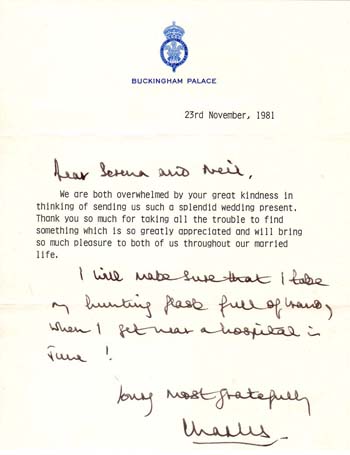 BUCKINGHAM PALACE
23rd November, 1981
Dear Serena and Neil,
We are both overwhelmed by your great kindness in
thinking of sending us such a splendid wedding present.
Thank you so much for taking all the trouble to find
something which is so greatly appreciated and will bring
so much pleasure to both of us throughout our married
life.
I will make sure that I take
my hunting flask full of brandy
when I get near a hospital in
June !
Yours most gratefully
Charles.